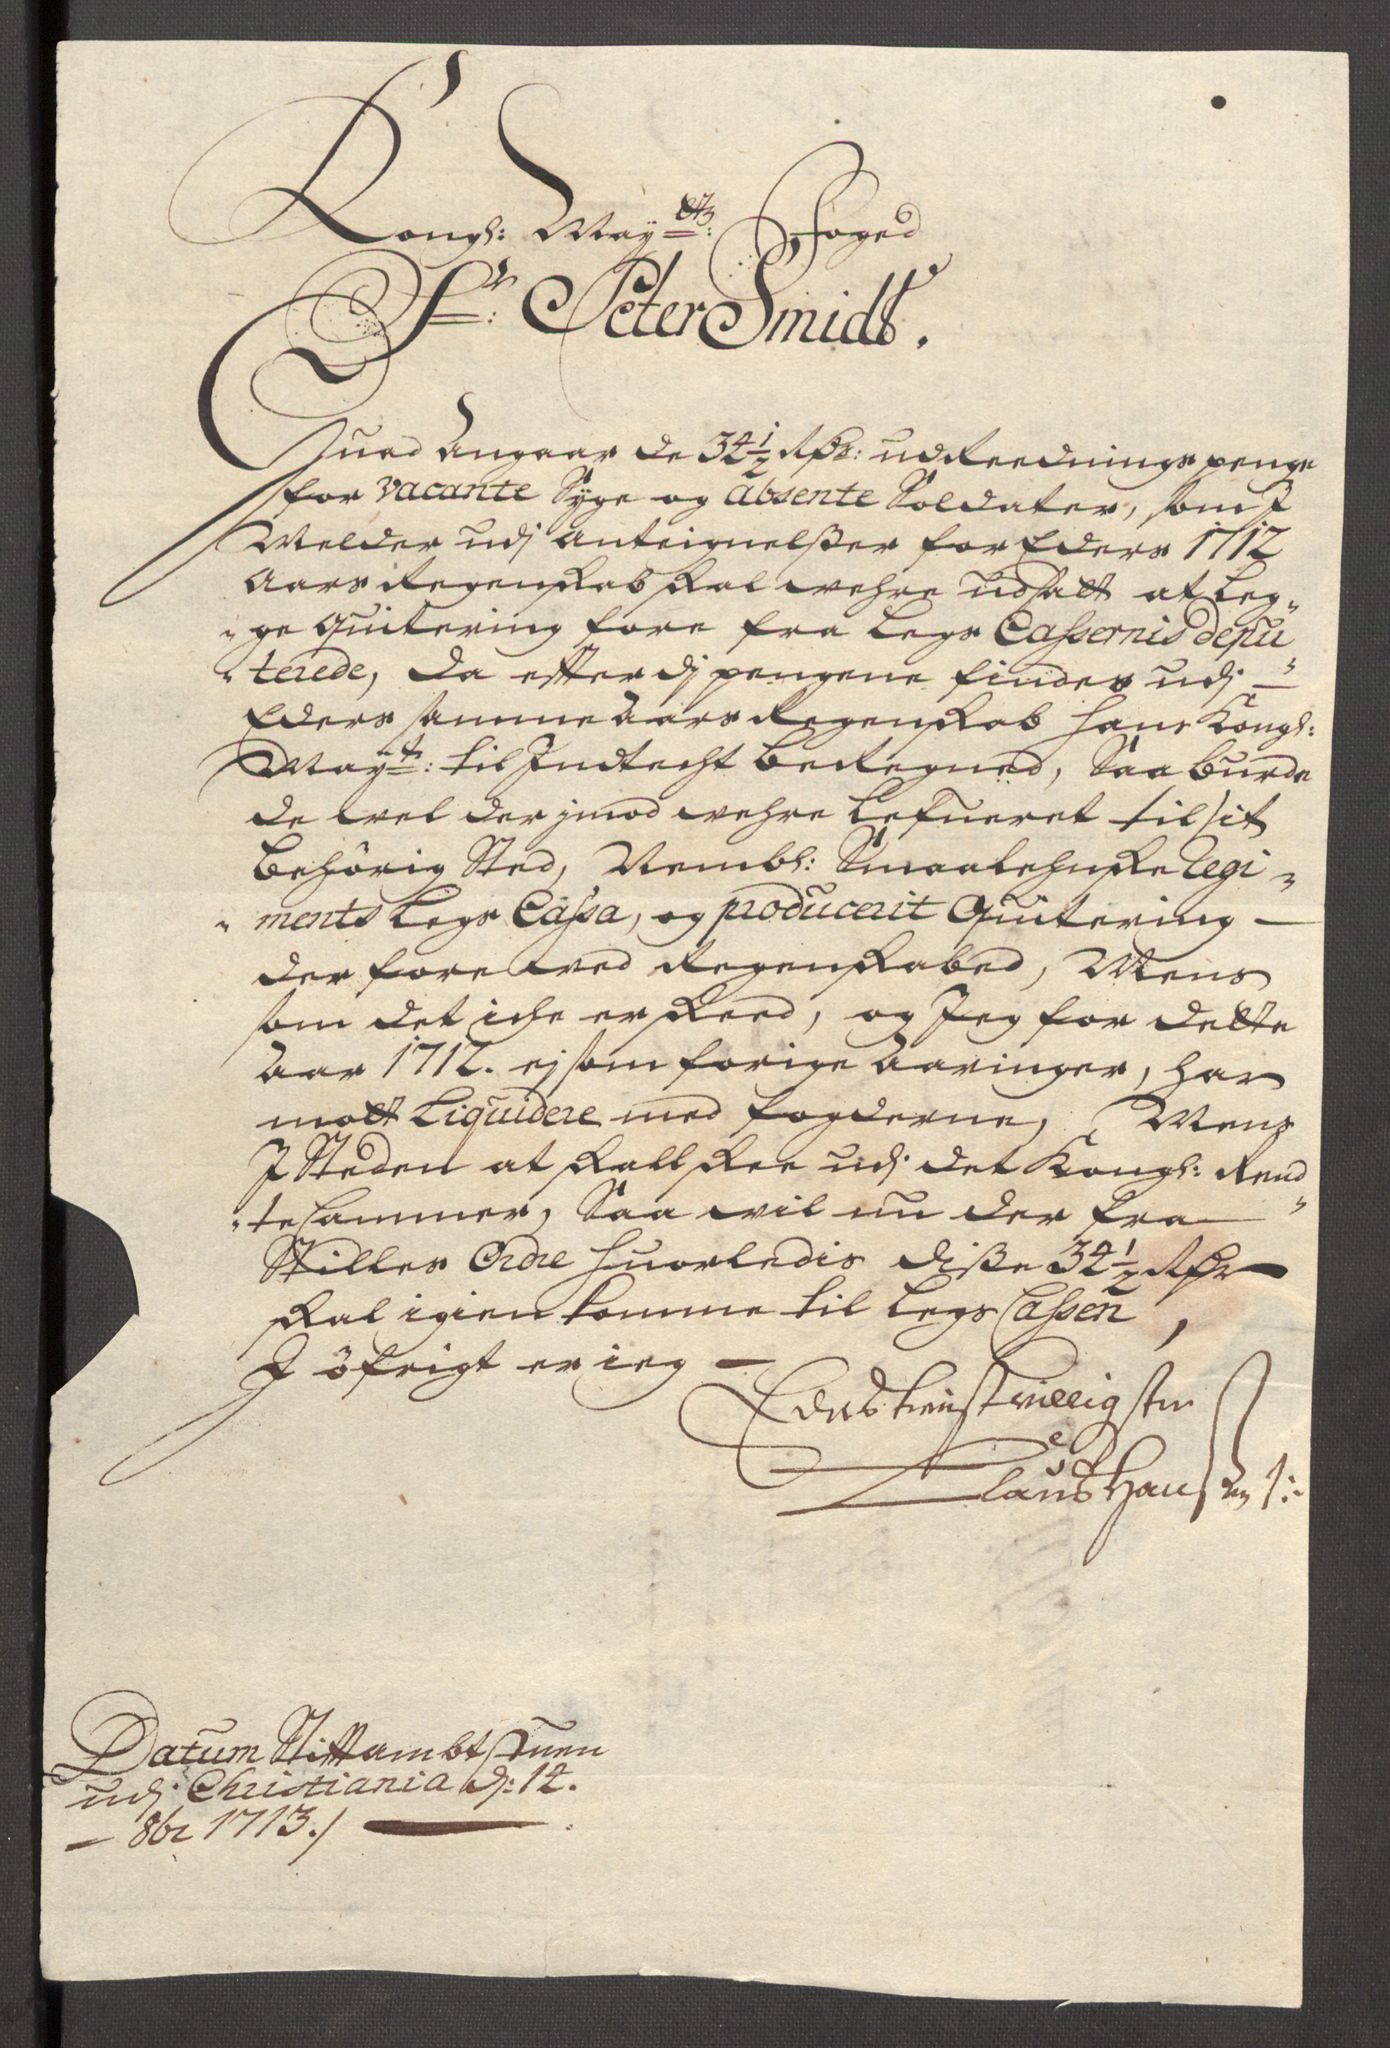 Kongl: May:ts: Foged
Sr: Peter Smidt.
Huad Angaar de 34½ Rdr: udReednings penge
for vacante Syge og absente Soldater, som I
Melder udj Anteignelsser for Eders 1712
Aars Regenskab skal wehre udsatt at leg-
-ge Quitering fore fra Legs Cassernis depu-
-terede, da efterdj pengene findes udj
Eders samme Aars Regenskab hans Kongl:
Mayts: til Indtecht beRegned, Saa burde
de wel der jmod wehre lefueret til sit
behörig Sted, Nembl: Smaalehnske Regi-
-ments Legs Cassa, og producerit Quitering
derfore ved Regenskabed, Mens
som det iche er skeed, og Jeg for dette
Aar 1712. ej som forige Aaringer, har
mott Liquidere med fogderne, Mens
I Steden at skall skee udj det Kongl: Rend-
-te Cammer, Saa wil nu der fra
Stilles Ordre huorledis disse 34½ Rdr
skal igien komme til Legs Cassen,
I öfrigt er ieg
Eders tienstvilligster
Claus Hansen
Datum Stiftambtstuen
udj Christiania d: 14.
8br 1713./